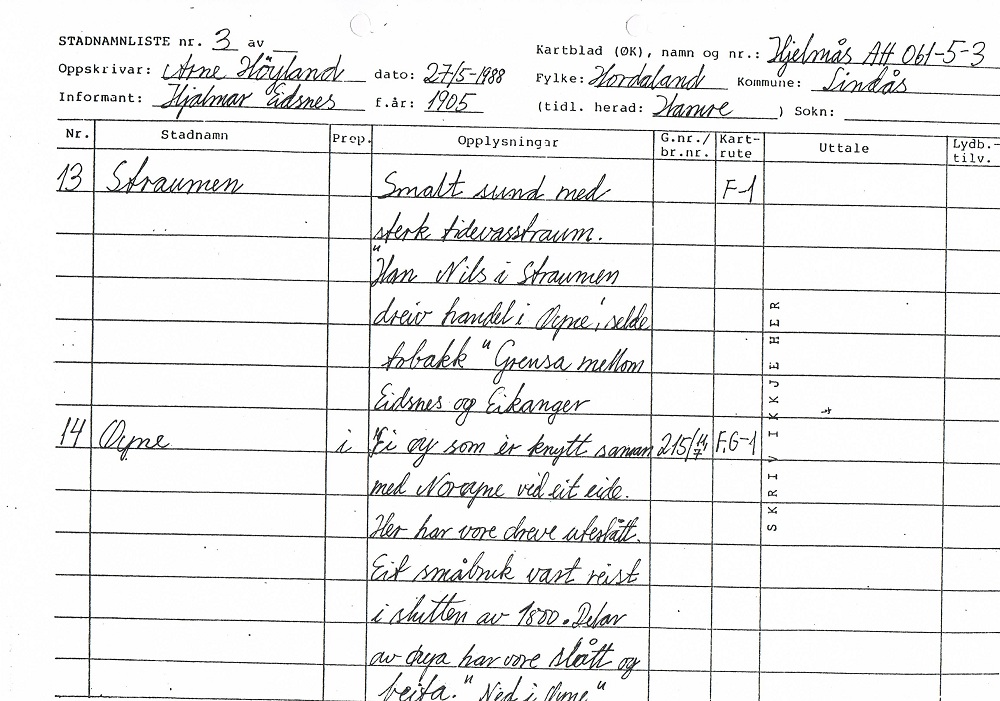 STADNAMNLISTE nr. 3 av __
Kartblad (ØK), namn og nr.: Hjelmås AH 061-5-3
Oppskrivar: Arne Höyland dato: 27/5-1988 Fylke: Hordaland Kommune: Lindås
Informant: Hjalmar Eidsnes f.år: 1905 (tidl. herad: Hamre ) Sokn:
Nr. Stadnamn Prep. Opplysningar G.nr./ br.nr. Kart- rute Uttale Lydb.- tilv.
13 Straumen Smalt sund med F-1
sterk tidevasstraum.
"Han Nils i Straumen
dreiv handel i Øyne, selde
tobakk" Grensa mellom
Eidsnes og Eikanger
14 Øyne i "Ei øy som er knytt saman 215/ F,G-1
med Norøyne ved eit eide.
Her har vore dreve uteslått.
Eit småbruk vart reist
i slutten av 1800. Delar
av øya har vore slått og
beita." "Ned i Øyne"
SKRIV IKKJE HER